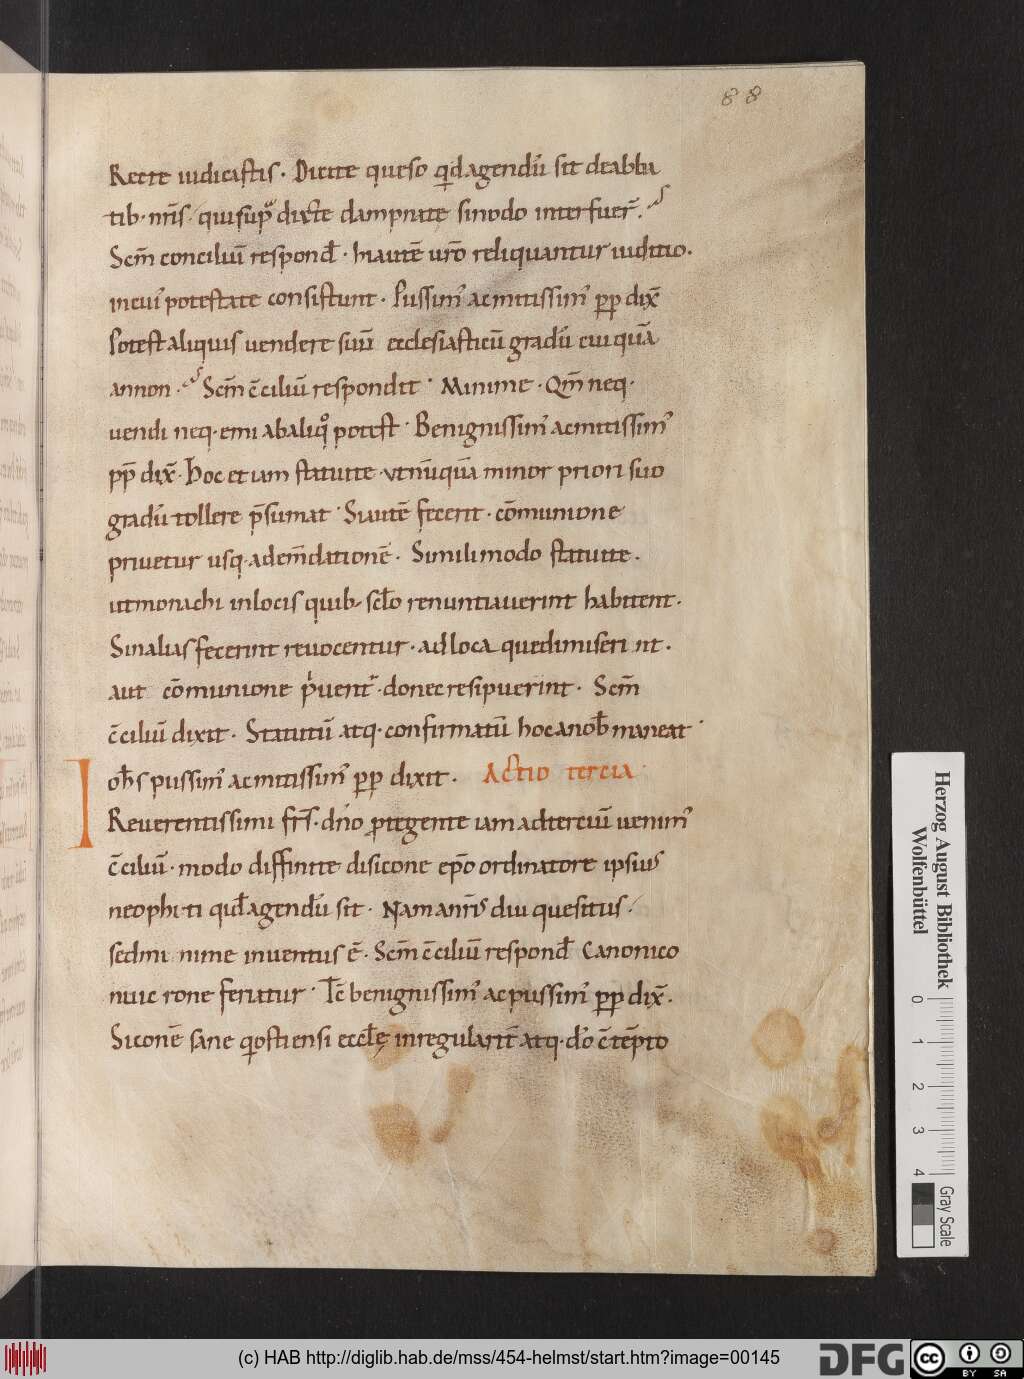 88
Recte iudicastis. Dicite queso qd agendũ sit deabba
tib· nr̃is quisup̃ dicte dampnate sinodo interfuer̃.
Scm̃ conciliuͥ respond̄· hi autē uro relinquantur iuditio.
incuiꝰ potestate consistunt. Piissimꝰ acmitissimꝰ pp̃ dix̃
Potest aliquis uendere suũ ecclesiasticũ gradũ cuiquã
annon. Scm̃ c̄ciliũ respondit· Minime. Qm̃ neq·
uendi neq· emi abaliqͦ potest· Benignissimꝰ acmitissimꝰ
pp̃ dix̃. Hoc etiam statuite· vtnũquã minor priori suo
gradũ tollere p̄sumat· Siautē fecerit· cōmunione
priuetur usq· ademd̄ationē. Similimodo statuite.
utmonachi inlocis quib· scl̄o renuntiauerint habitent.
Sinalias fecerint reuocentur· adloca quedimiserint.
aut cōmunione pͥuentͬ· donec resipuerint. Scm̃
c̄ciliũ dixit. Statutũ atq· confirmatũ hocanob̄ maneat
Ioh̄s piissimꝰ acmitissimꝰ pp̃ dixit. Actio tercia
Reuerentissimi frs̃. dño ptegente iam adterciũ uenimꝰ
c̄ciliũ. modo diffinite disicone ep̄o ordinatore ipsius
neophiti qid̄ agendũ sit. Nam anr̃is diu quesitus.
sedminime inuentus ē. Scm̃ c̄ciliũ respond̄ Canonico
nunc rone feriatur· Tc̄ benignissimꝰ acpiissimꝰ pp̃ dix̃.
Siconē sane qostiensi eccl̄ę inregularit̃ atq· do c̄tēpto
Herzog August Bibliothek
Wolfenbüttel
0 1 2 3 4
Gray Scale
(c) HAB http://diglib.hab.de/mss/454-helmst/start.htm?image=00145
DFG
cc
BY SA